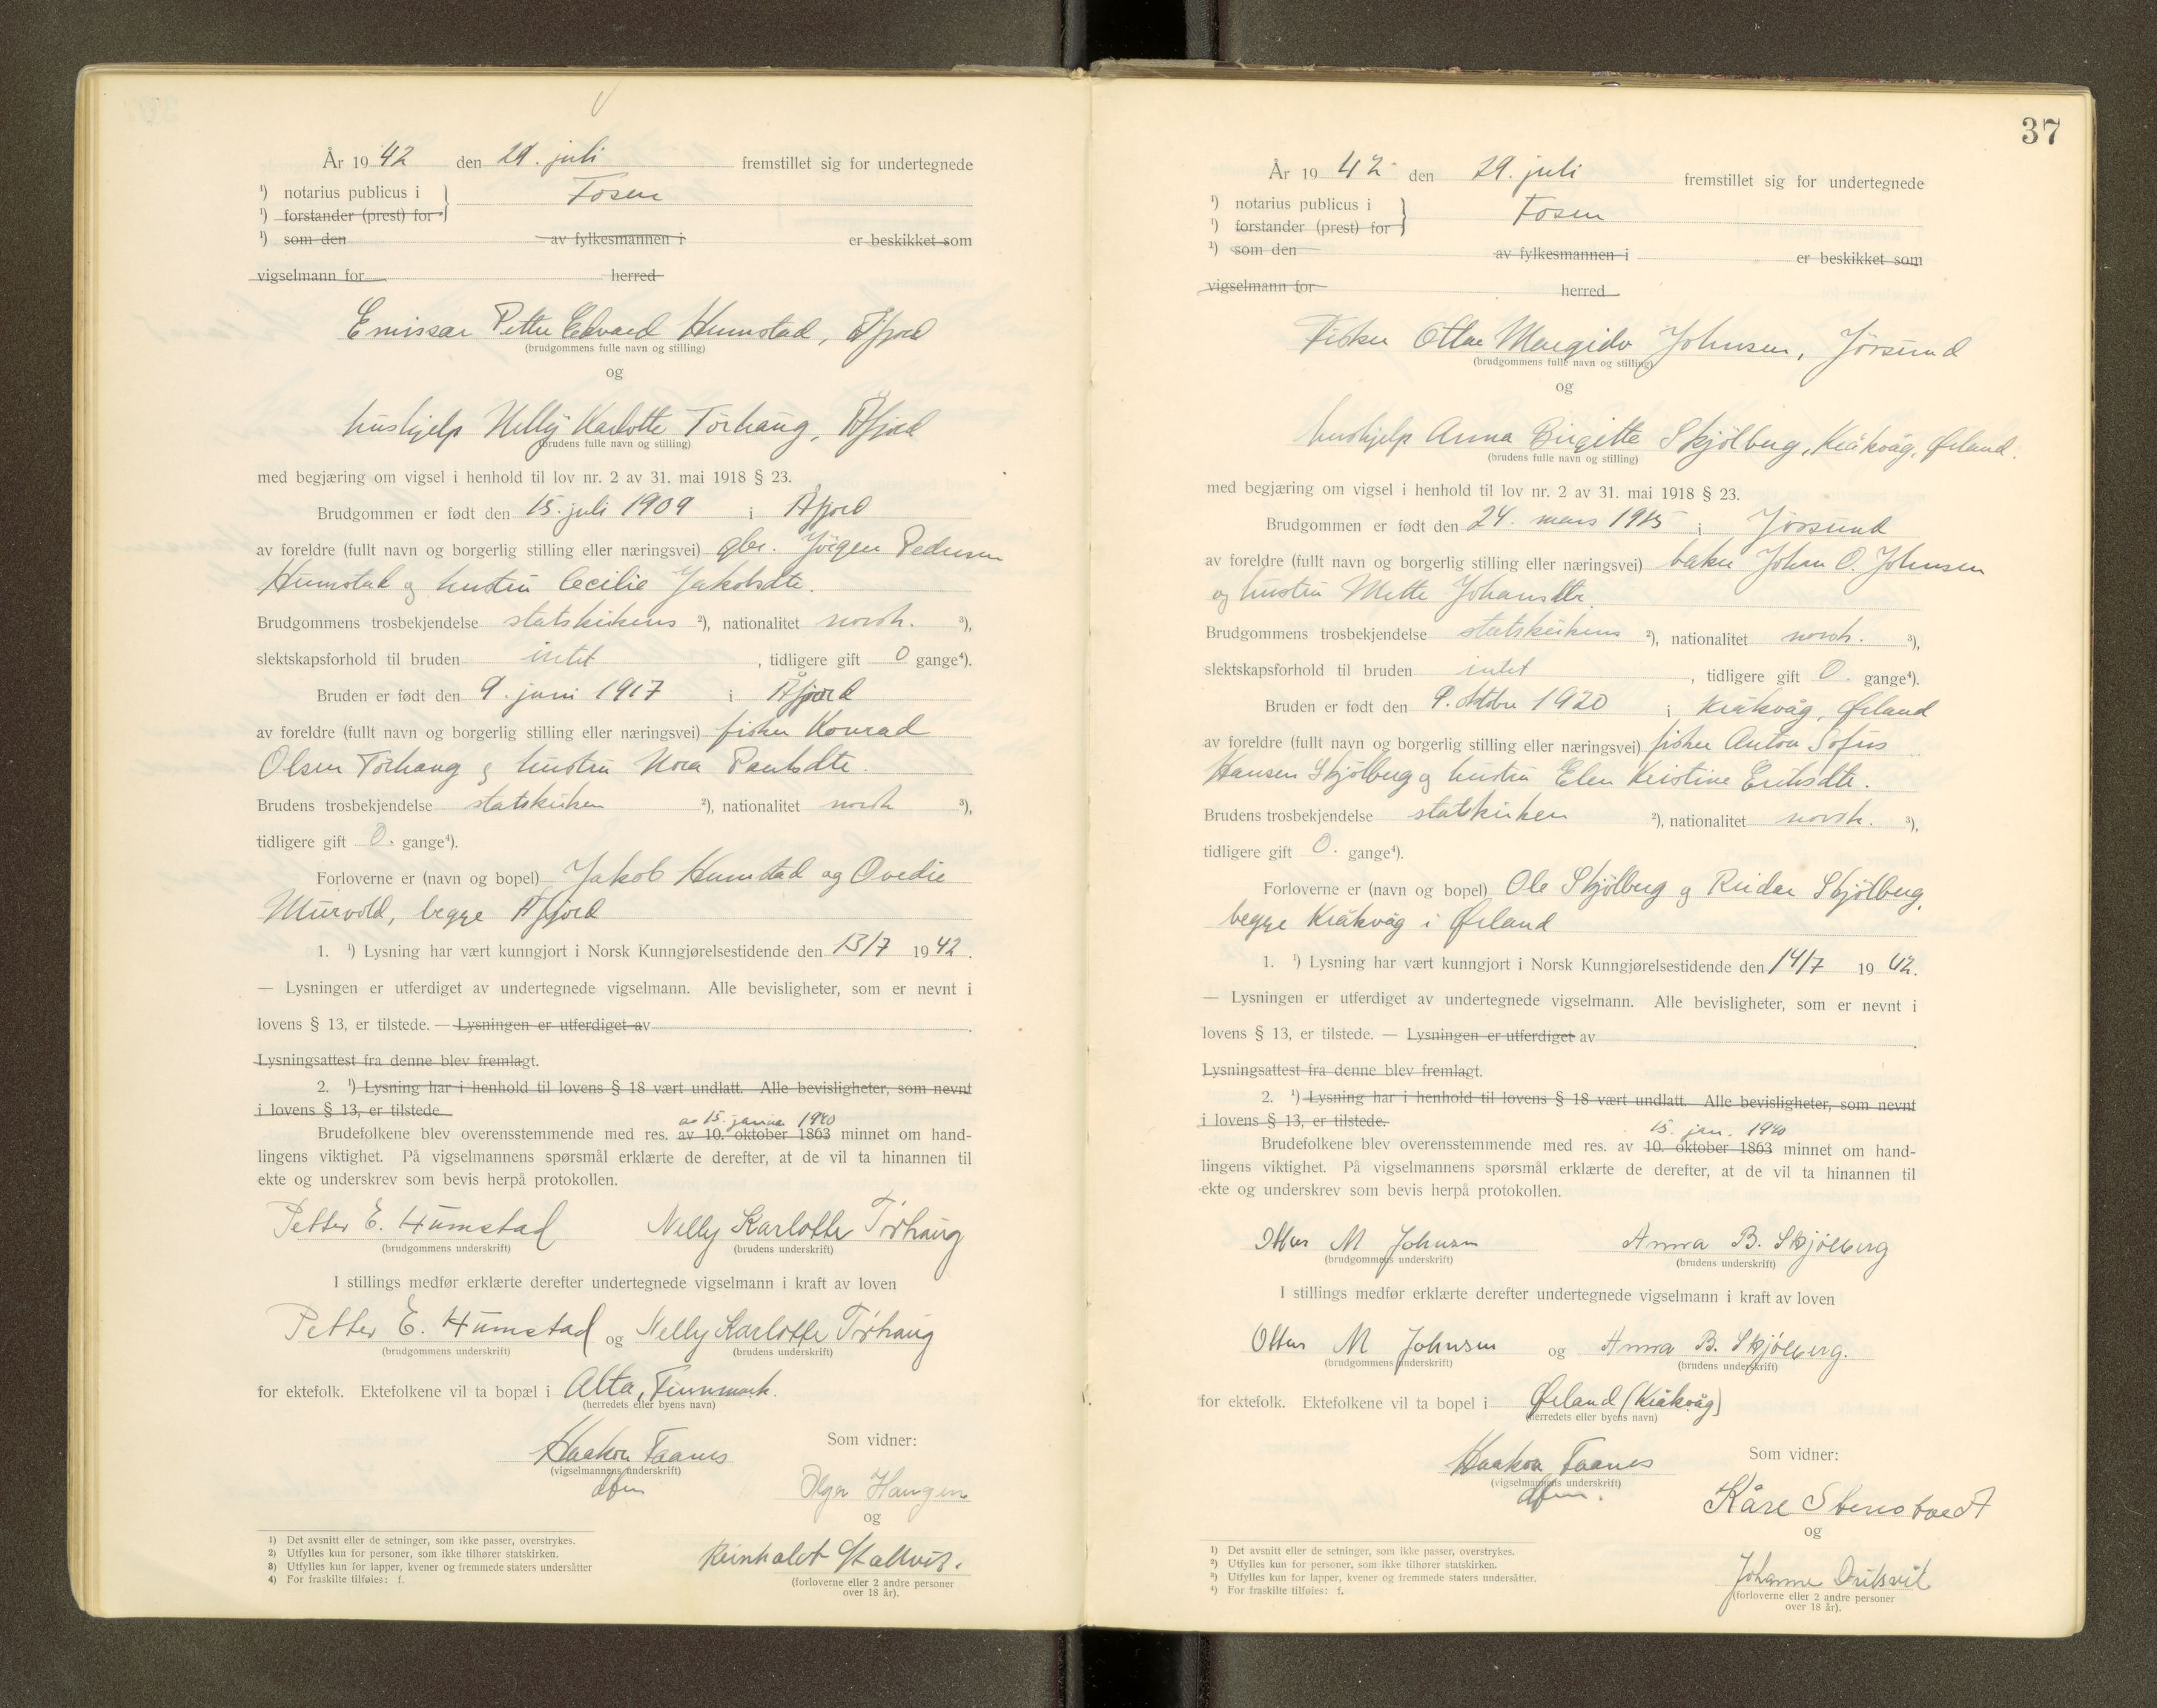 År 19 42 den 29. juli fremstillet sig for undertegnede
¹) notarius publicus i } Fosen
¹) forstander (prest) for
¹) som den av fylkesmannen i er beskikket som
vigselmann for herred
Emissær Petter Edvard Humstad, Åfjord
(brudgommens fulle navn og stilling)
og
hushjelp Nelly Karlotte Törhaug, Åfjord
(brudens fulle navn og stilling)
med begjæring om vigsel i henhold til lov nr. 2 av 31. mai 1918 § 23.
Brudgommen er født den 15. juli 1909 i Åfjord
av foreldre (fullt navn og borgerlig stilling eller næringsvei) gbr. Jörgen Pedersen
Humstad og hustru Cecilie Jakobsdtr.
Brudgommens trosbekjendelse statskirkens ²), nationalitet norsk. ³),
slektskapsforhold til bruden intet , tidligere gift 0 gange⁴).
Bruden er født den 9. juni 1917 i Åfjord
av foreldre (fullt navn og borgerlig stilling eller næringsvei) fisker Konrad
Olsen Törhaug og hustru Nora Paulsdtr.
Brudens trosbekjendelse statskirken ²), nationalitet norsk ³),
tidligere gift 0. gange⁴).
Forloverne er (navn og bopel) Jakob Humstad og Ovedie
Murvold, begge Åfjord
1. ¹) Lysning har vært kunngjort i Norsk Kunngjørelsestidende den 13/7 19 42.
— Lysningen er utferdiget av undertegnede vigselmann. Alle bevisligheter, som er nevnt i
lovens § 13, er tilstede. — Lysningen er utferdiget av
Lysningsattest fra denne blev fremlagt.
2. ¹) Lysning har i henhold til lovens § 18 vært undlatt. Alle bevisligheter, som nevnt
i lovens § 13, er tilstede
av 15. januar 1940
Brudefolkene blev overensstemmende med res. av 10. oktober 1863 minnet om hand-
lingens viktighet. På vigselmannens spørsmål erklærte de derefter, at de vil ta hinannen til
ekte og underskrev som bevis herpå protokollen.
Petter E. Humstad Nelly Karlotte Törhaug
(brudgommens underskrift) (brudens underskrift)
I stillings medfør erklærte derefter undertegnede vigselmann i kraft av loven
Petter E. Humstad og Nelly Karlotte Törhaug
(brudgommens underskrift) (brudens underskrift)
for ektefolk. Ektefolkene vil ta bopæl i Alta, Finnmark.
(herredets eller byens navn)
Haakon Faanes
(vigselmannens underskrift)
dfm
Som vidner:
Olga Haugen
og
Reinholdt Stallvik.
(forloverne eller 2 andre personer
over 18 år).
1) Det avsnitt eller de setninger, som ikke passer, overstrykes.
2) Utfylles kun for personer, som ikke tilhører statskirken.
3) Utfylles kun for lapper, kvener og fremmede staters undersåtter
4) For fraskilte tilføies: f.
37
År 19 42 den 29. juli fremstillet sig for undertegnede
¹) notarius publicus i } Fosen
¹) forstander (prest) for
¹) som den av fylkesmannen i er beskikket som
vigselmann for herred
Fisker Ottar Margido Johnsen, Jörsund
(brudgommens fulle navn og stilling)
og
hushjelp Anna Birgitte Skjölberg, Kråkvåg, Ørland.
(brudens fulle navn og stilling)
med begjæring om vigsel i henhold til lov nr. 2 av 31. mai 1918 § 23.
Brudgommen er født den 24. mars 1915 i Jörsund
av foreldre (fullt navn og borgerlig stilling eller næringsvei) baker Johan O. Johnsen
og hustru Mette Johansdtr.
Brudgommens trosbekjendelse statskirkens ²), nationalitet norsk. ³),
slektskapsforhold til bruden intet , tidligere gift 0. gange⁴).
Bruden er født den 9. oktober 1920 i Kråkvåg, Ørland
av foreldre (fullt navn og borgerlig stilling eller næringsvei) fisker Anton Sofus
Hansen Skjölberg og hustru Elen Kristine Eriksdtr.
Brudens trosbekjendelse statskirken ²), nationalitet norsk. ³),
tidligere gift 0. gange⁴).
Forloverne er (navn og bopel) Ole Skjölberg og Reidar Skjölberg,
begge Kråkvåg i Ørland
1. ¹) Lysning har vært kunngjort i Norsk Kunngjørelsestidende den 14/7 19 42.
— Lysningen er utferdiget av undertegnede vigselmann. Alle bevisligheter, som er nevnt i
lovens § 13, er tilstede. — Lysningen er utferdiget av
Lysningsattest fra denne blev fremlagt.
2. ¹) Lysning har i henhold til lovens § 18 vært undlatt. Alle bevisligheter, som nevnt
i lovens § 13, er tilstede.
15. jan. 1940
Brudefolkene blev overensstemmende med res. av 10. oktober 1863 minnet om hand-
lingens viktighet. På vigselmannens spørsmål erklærte de derefter, at de vil ta hinannen til
ekte og underskrev som bevis herpå protokollen.
Ottar M Johnsen Anna B. Skjölberg
(brudgommens underskrift) (brudens underskrift)
I stillings medfør erklærte derefter undertegnede vigselmann i kraft av loven
Ottar M Johnsen og Anna B. Skjölberg.
(brudgommens underskrift) (brudens underskrift)
for ektefolk. Ektefolkene vil ta bopel i Ørland (Kråkvåg)
(herredets eller byens navn)
Haakon Faanes
(vigselmannens underskrift)
dfm.
Som vidner:
Kåre
og
Johanne
(forloverne eller 2 andre personer
over 18 år).
¹) Det avsnitt eller de setninger, som ikke passer, overstrykes.
²) Utfylles kun for personer, som ikke tilhører statskirken.
³) Utfylles kun for lapper, kvener og fremmede staters undersåtter.
⁴) For fraskilte tilføies: f.